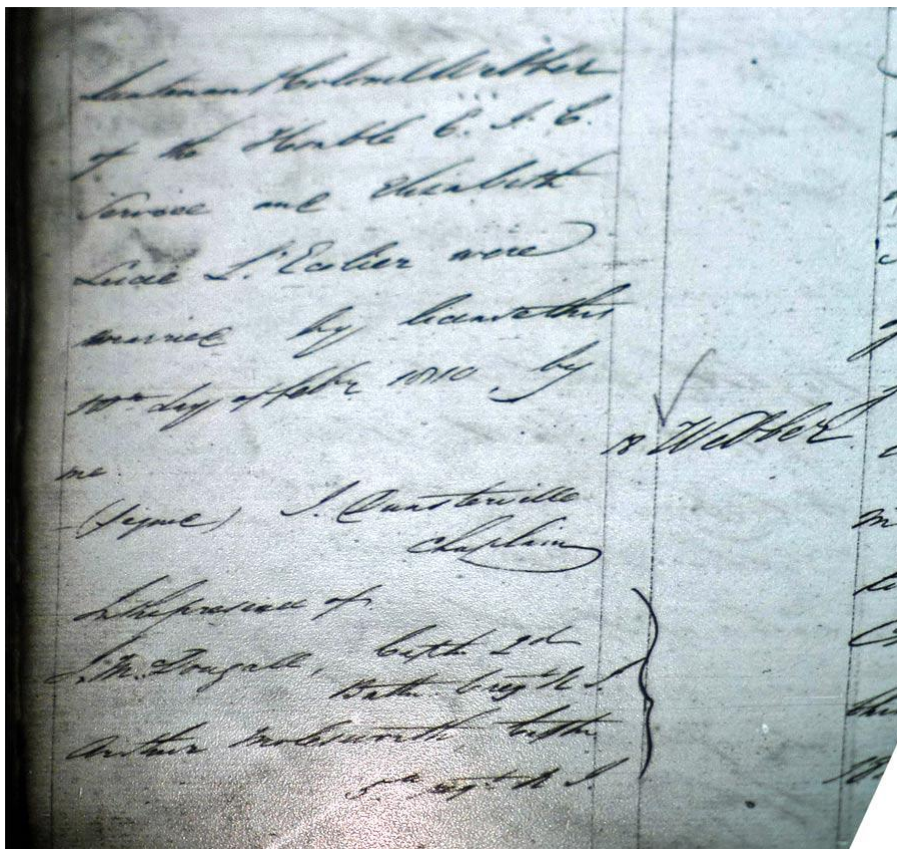 Lieutenant Colonel Webber
of the Honble C. I. C.
Service and Elizabeth
Lucie L'Ecolier were
married by license this
10th day of Febr 1810 by
me
(signed) J. Dunsterville
Chaplain
In the presence of
J. McDougall, Captn 2d
Battn Regt N I
Arthur Molesworth Captn
5th Regt N I
Webber